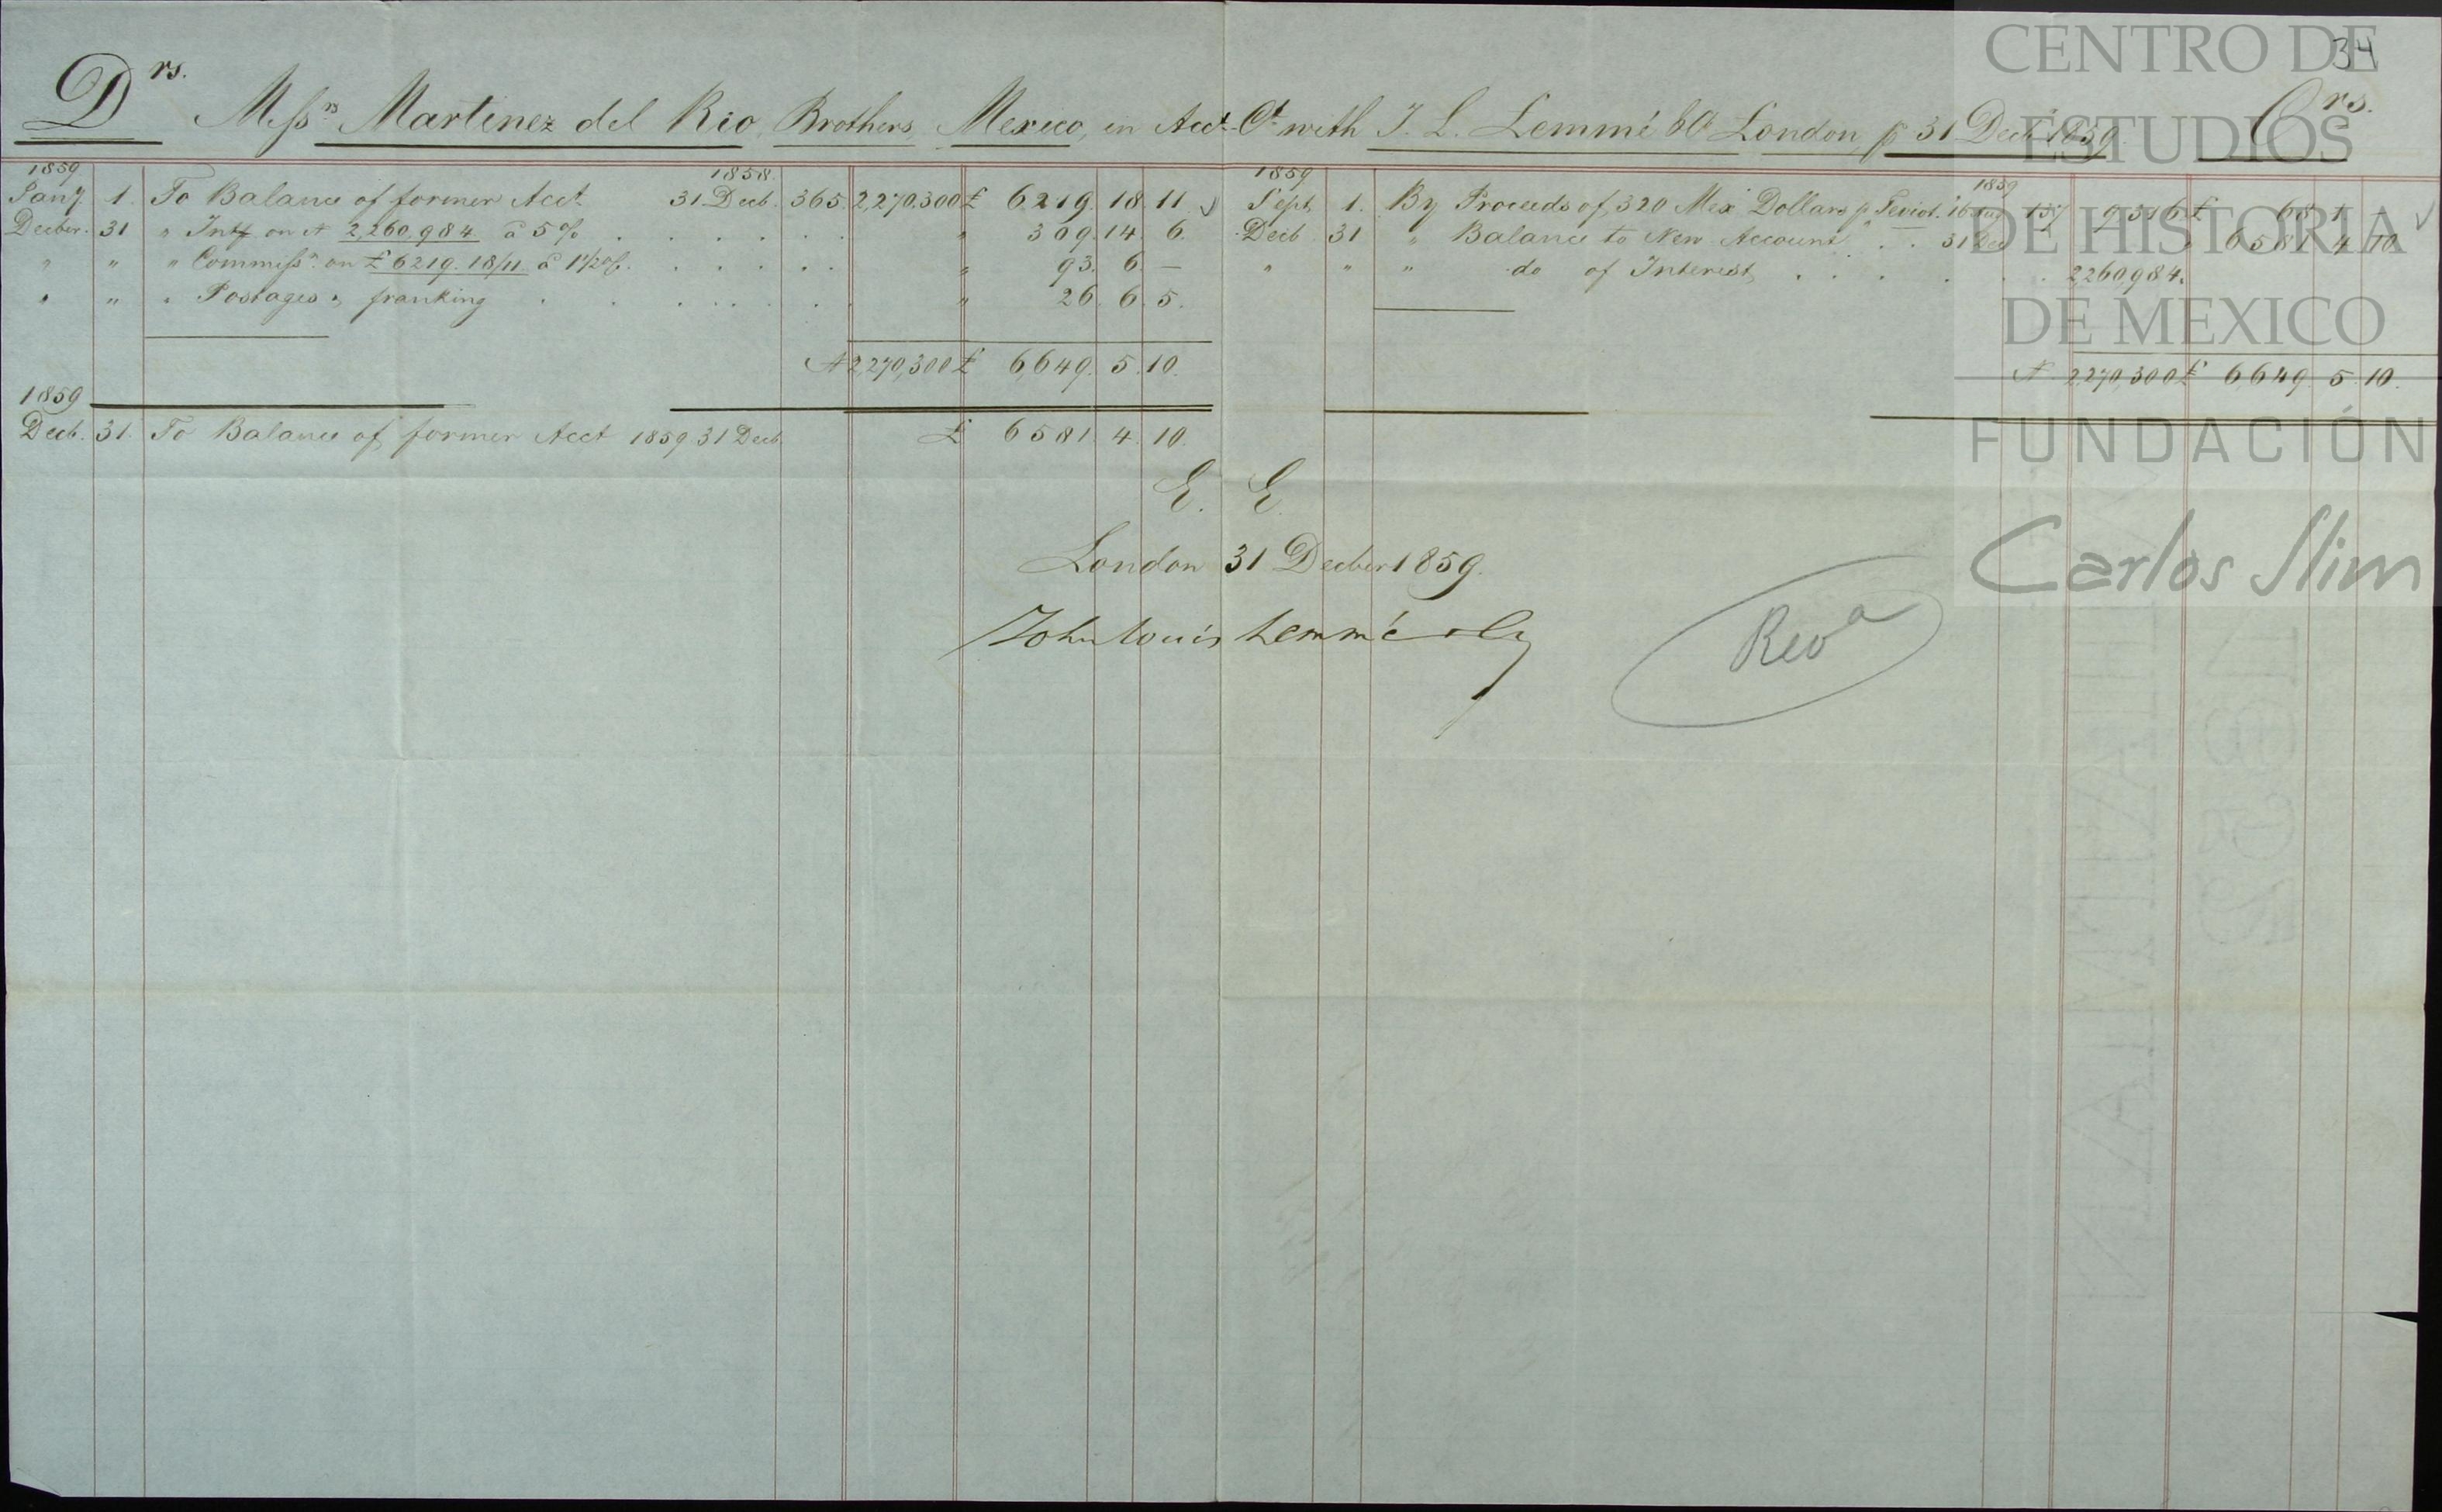 34
Drs. Messrs Martinez del Rio, Brothers, Mexico, in Acct. Ct. with J. L. Lemmé & Co London, p 31 Decb. 1859. Crs.
1859 1858.
Jany 1. To Balance of former Acct. 31 Decb. 365. 2,270,300 £ 6219. 18. 11
Decber. 31 " Intt. on N 2,260,984 à 5% " 309. 14. 6.
" " " Commissn. on £ 6219. 18/11 à 1 1/2 %. " 93. 6. —
" " " Postages & franking " 26. 6. 5.
N 2,270,300 £ 6,649. 5. 10.
1859
Decb. 31. To Balance of former Acct 1859. 31 Decb. £ 6581. 4. 10.
1859 1859
Sept. 1. By Proceeds of 320 Mex Dollars p Teviot. 16 Aug 137 9,316 £ 68. 1. —
Decb 31 " Balance to New Account . . 31 Dec " 6581. 4. 10
" " " do of Interest 2,260,984.
N 2,270,300 £ 6649. 5. 10.
E. E.
London 31 Decber 1859.
John Louis Lemmé & Co
Reva
CENTRO DE
ESTUDIOS
DE HISTORIA
DE MEXICO
FUNDACIÓN
Carlos Slim